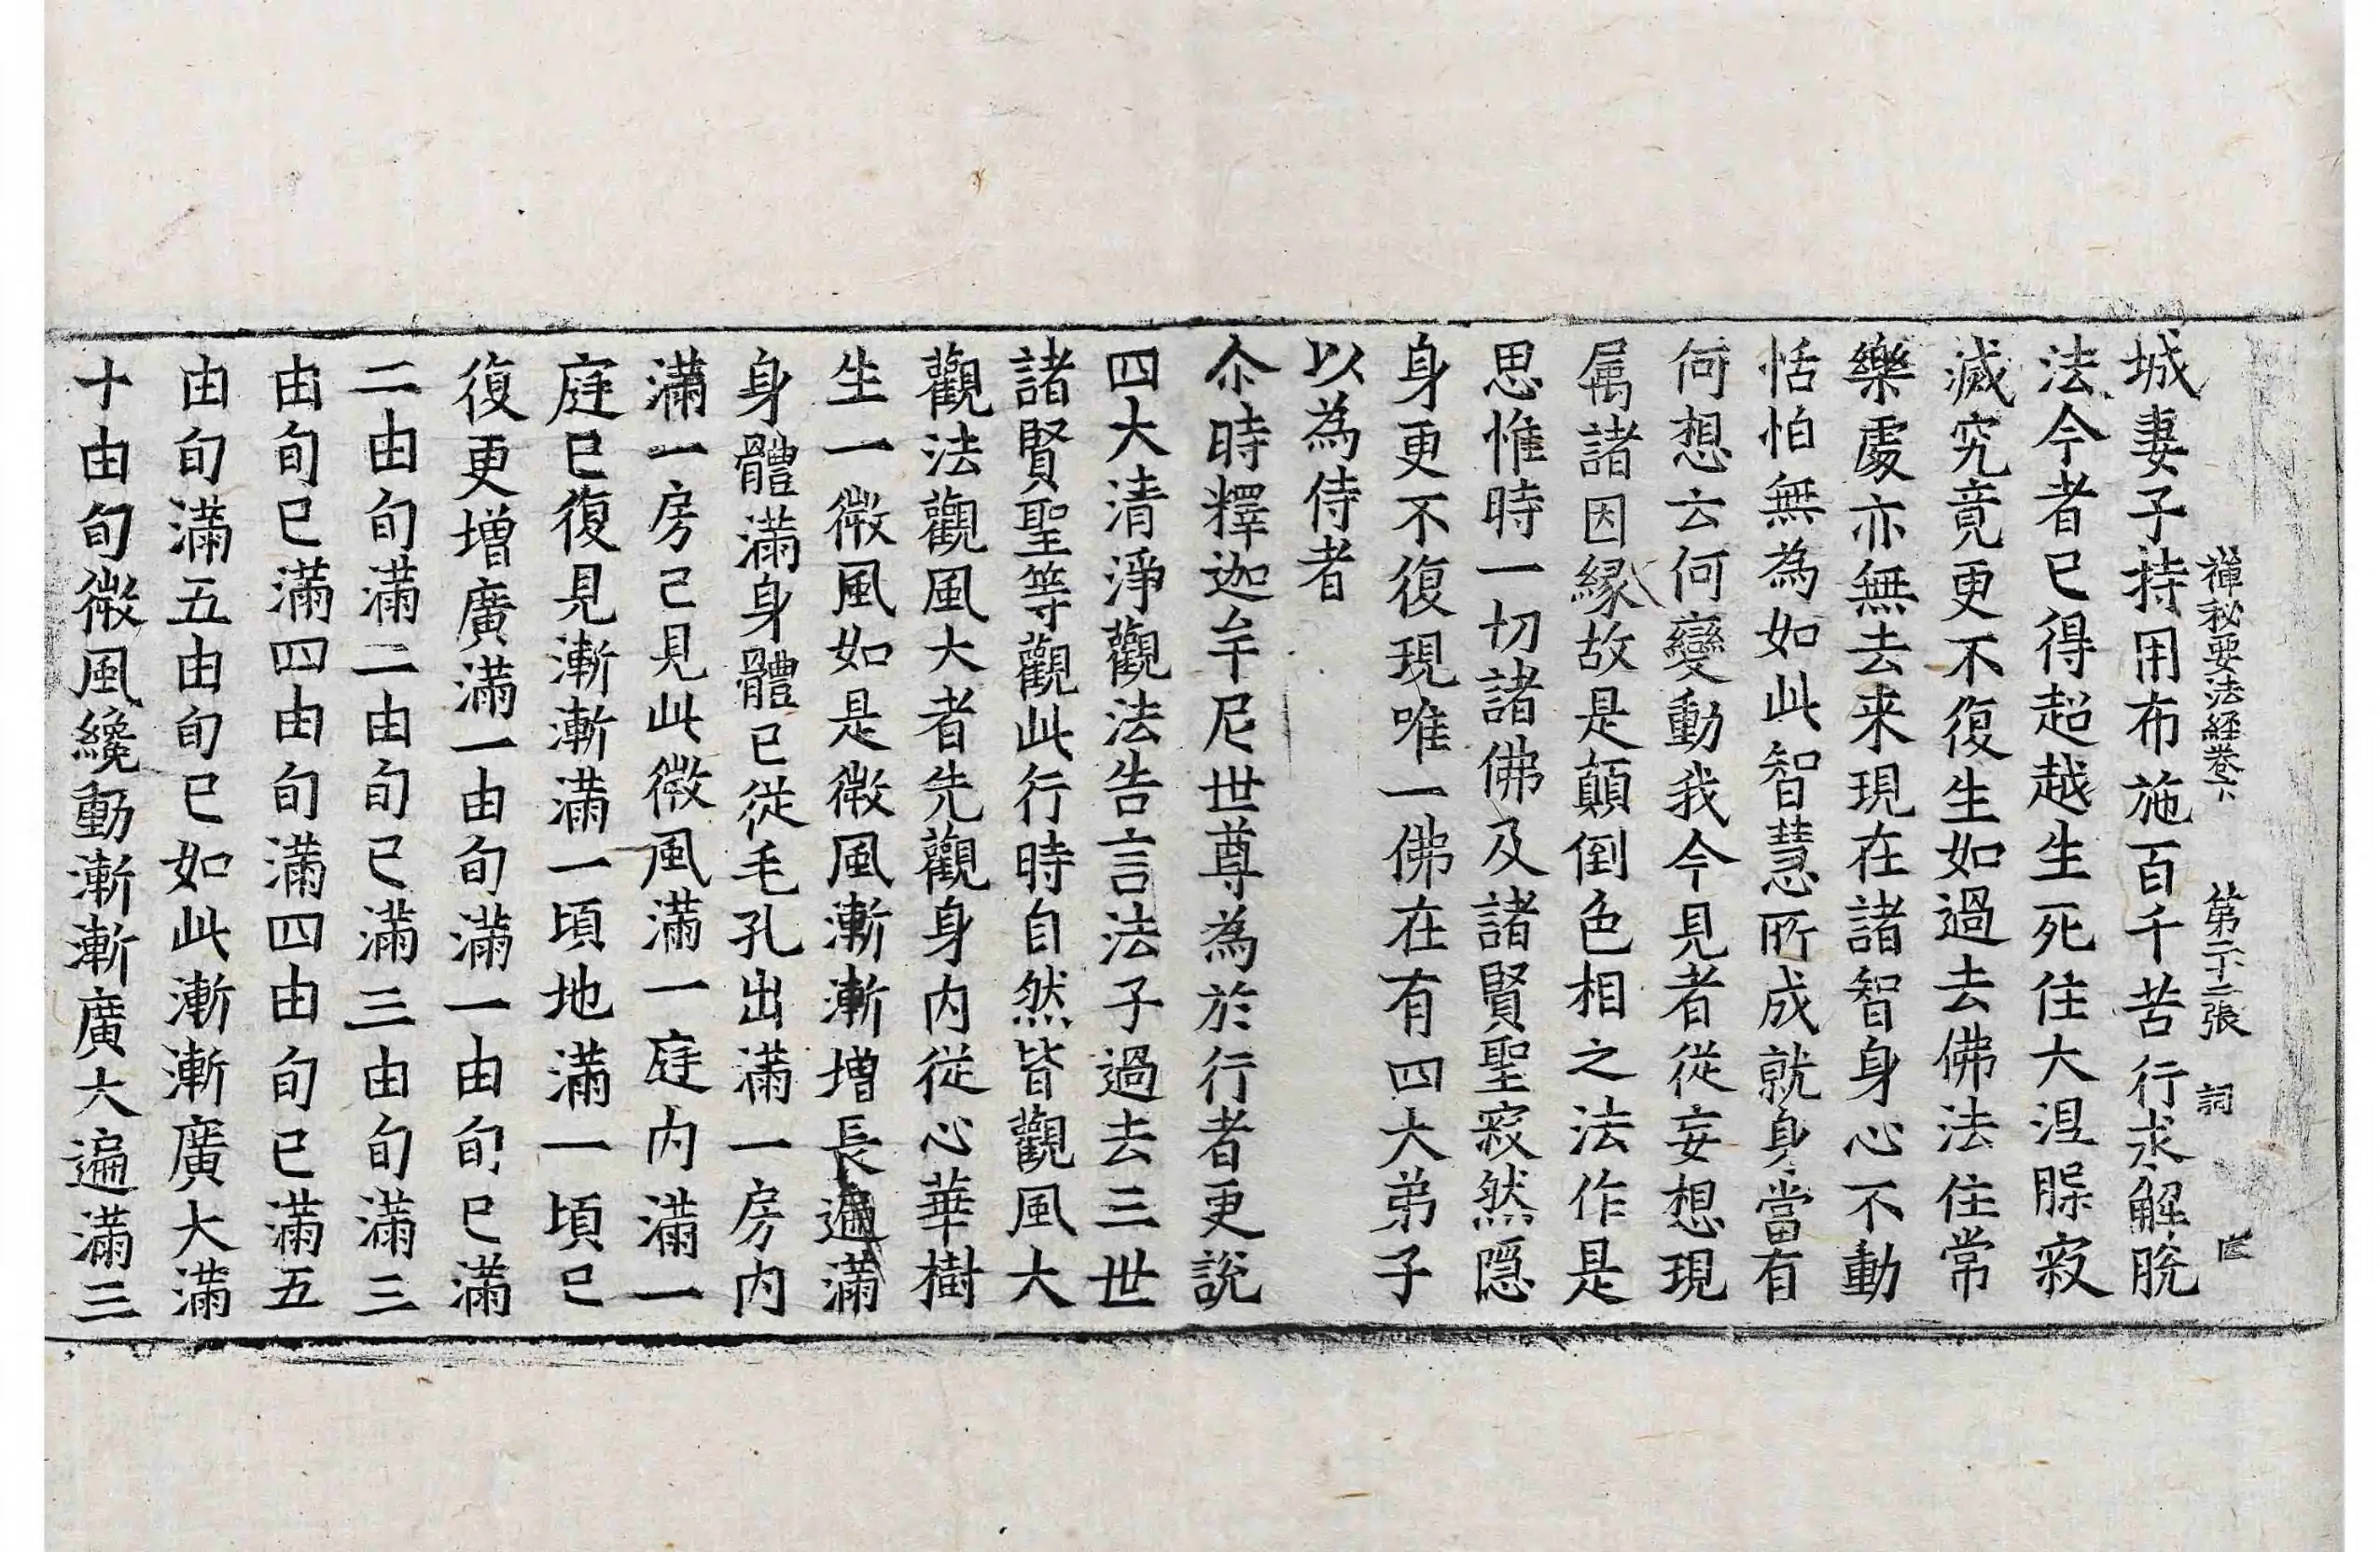 禪秘要法經卷下 第二十二張 詞
城妻子持用布施百千苦行求解脫
法今者已得超越生死住大涅槃寂
滅究竟更不復生如過去佛法住常
樂處亦無去来現在諸智身心不動
恬怕無為如此智慧所成就身當有
何想云何變動我今見者從妄想現
属諸因縁故是顛倒色相之法作是
思惟時一切諸佛及諸賢聖寂然隱
身更不復現唯一佛在有四大弟子
以為侍者
尒時釋迦牟尼世尊為於行者更說
四大清淨觀法告言法子過去三世
諸賢聖等觀此行時自然皆觀風大
觀法觀風大者先觀身内從心華樹
生一微風如是微風漸漸增長遍滿
身體滿身體已從毛孔出滿一房内
滿一房已見此微風滿一庭内滿一
庭已復見漸漸滿一頃地滿一頃已
復更增廣滿一由旬滿一由旬已滿
二由旬滿二由旬已滿三由旬滿三
由旬已滿四由旬滿四由旬已滿五
由旬滿五由旬已如此漸漸廣大滿
十由旬微風纔動漸漸廣大遍滿三